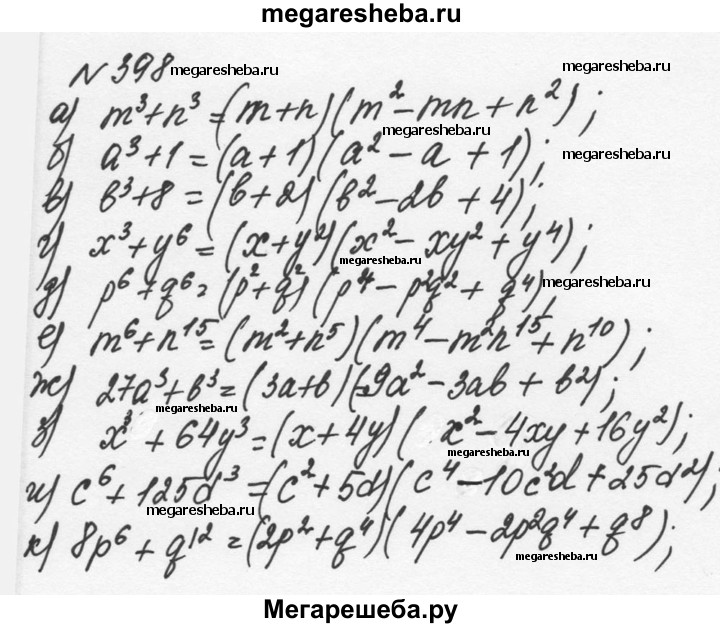 megaresheba.ru
N 398 megaresheba.ru
а) m³+n³ = (m+n)(m²-mn+n²); megaresheba.ru
megaresheba.ru
б) a³+1 = (a+1)(a²-a+1); megaresheba.ru
в) b³+8 = (b+2)(b²-2b+4);
г) x³+y⁶ = (x+y²)(x²-xy²+y⁴);
megaresheba.ru
д) p⁶+q⁶ = (p²+q²)(p⁴-p²q²+q⁴); megaresheba.ru
е) m⁶+n¹⁵ = (m²+n⁵)(m⁴-m²n¹⁵+n¹⁰);
ж) 27a³+b³ = (3a+b)(9a²-3ab+b²);
megaresheba.ru megaresheba.ru
з) x³+64y³ = (x+4y)(x²-4xy+16y²);
megaresheba.ru
и) c⁶+125d³ = (c²+5d)(c⁴-10c²d+25d²);
megaresheba.ru
к) 8p⁶+q¹² = (2p²+q⁴)(4p⁴-2p²q⁴+q⁸);
megaresheba.ru
Мегарешеба.ру